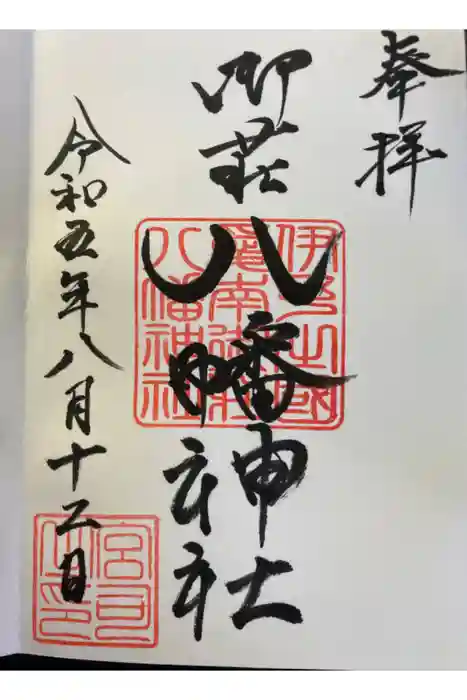 奉拝
御荘八幡神社
伊予之國
愛南御荘
八幡神社
令和五年八月十二日
宮司
之印